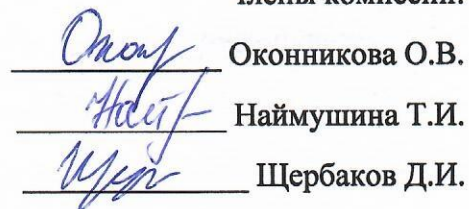 члены комиссии:
Оконникова О.В.
Наймушина Т.И.
Щербаков Д.И.